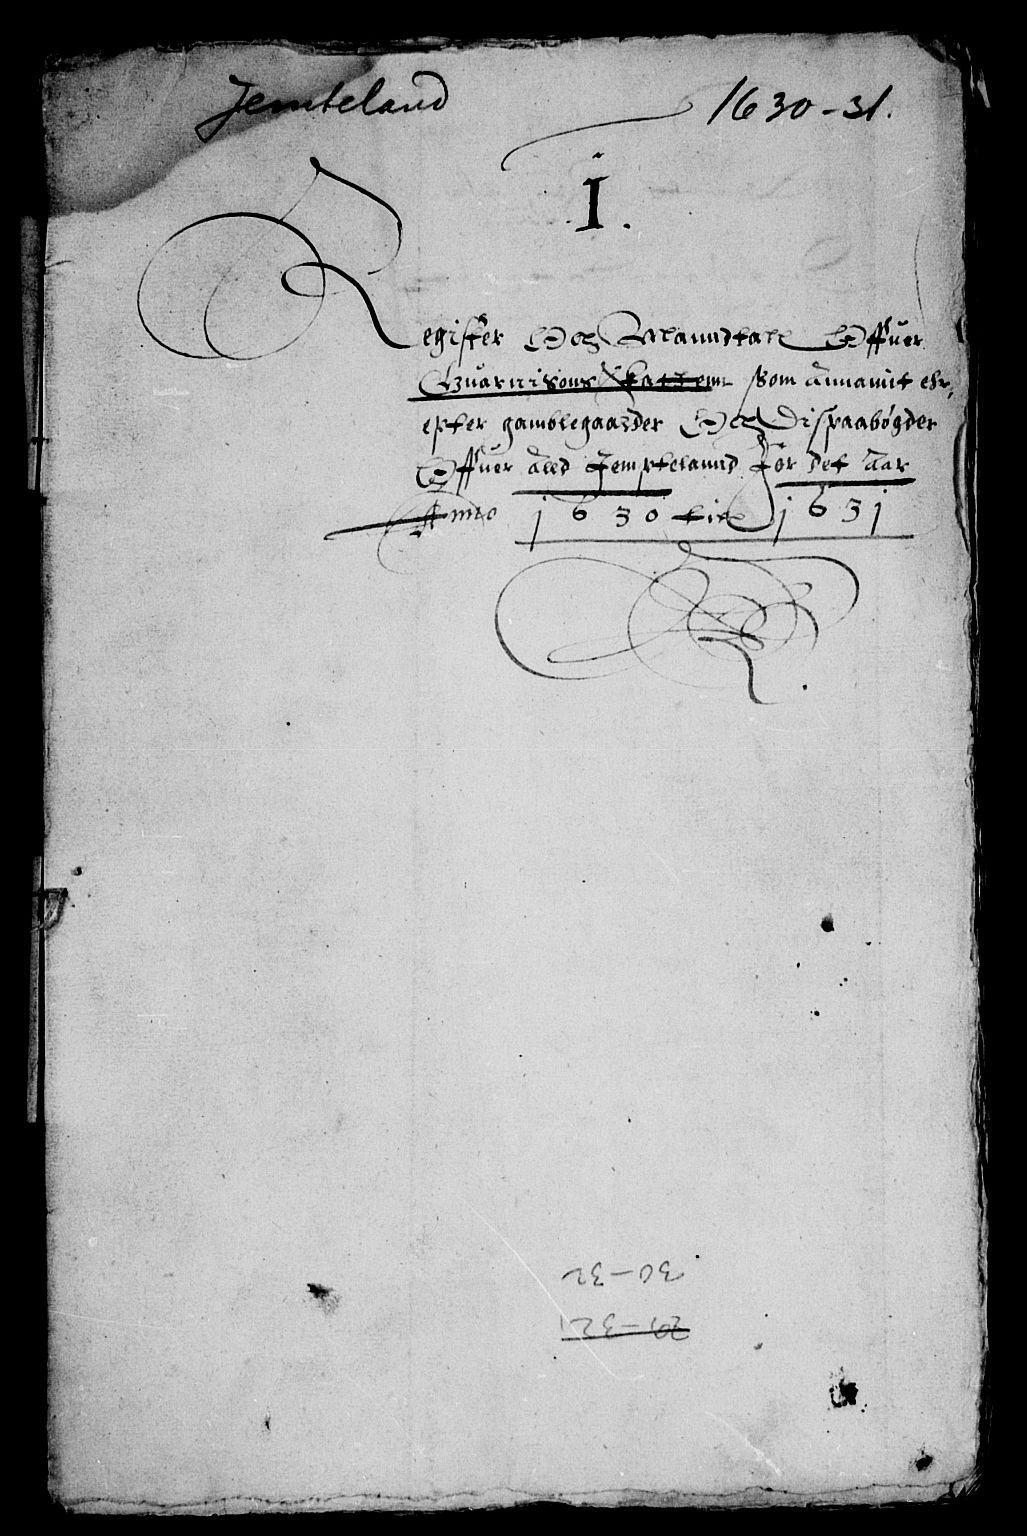 Jemteland 1630-31.
I.
Register Och Manndtall Offuer
Guarnisons Skattenn Som Annamit ehr,
epter gamblegaarder Och Dispaabøgder
Offuer Aled Jemptelannd For det Aar
Anno 1630 till 1631
30-32
29-32